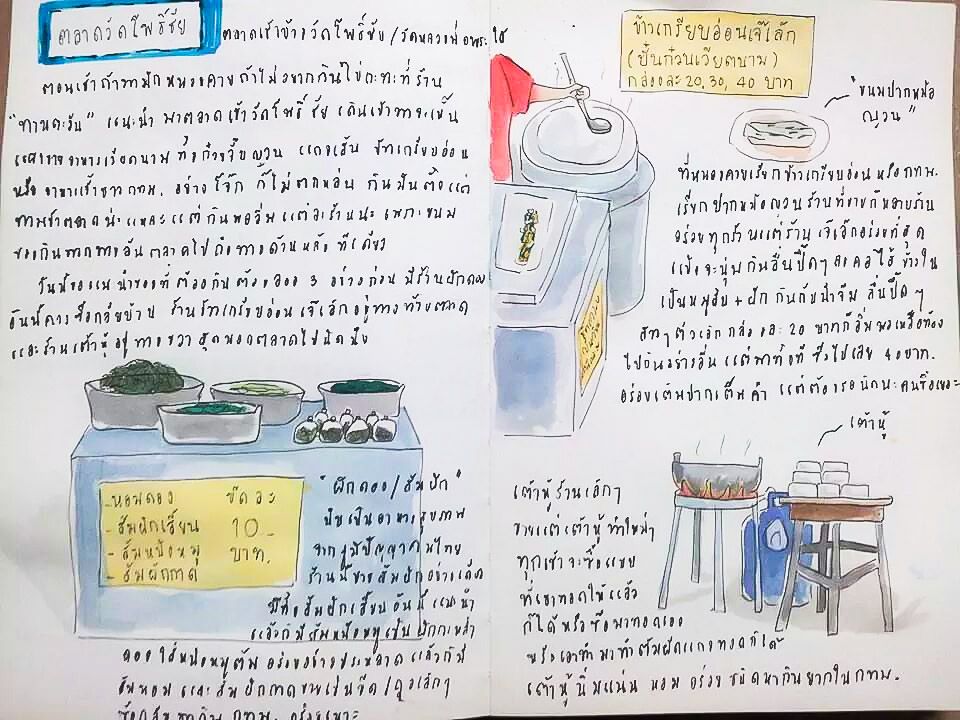 ตลาดวัดโพธิ์ชัย
ตลาดเช้าข้างวัดโพธิ์ชัย / วัดหลวงพ่อพระใส
ตอนเช้าถ้าหากมาพักหนองคายถ้าไม่อยากกินไข่กะทะที่ร้าน
"ทานตะวัน" แนะนำ มาตลาดเช้าวัดโพธิ์ชัย เดินเข้าหาจะเห็น
อาหารเวียดนาม ทั้งก๋วยจั๊บญวน แกงเส้น ข้าวเกรียบอ่อน
หรืออาหารเช้าชาวกทม. อย่าง โจ๊ก ก็ไม่ตกหล่น กินกันตั้งแต่
ตลาดนะแหละ แต่กินพออิ่มแต่ละร้านนะ เพราะขนม
ของกินหลากหลายอัน ตลาดไปถึงทางด้านหลัง ทีเดียว
วันนี้ขอแนะนำของที่ต้องกินต้องลอง 3 อย่างก่อน มีร้านผักดอง
อันนี้ควรซื้อกลับบ้าน ร้านข้าวเกรียบอ่อนเจ๊เล็กอยู่ทางซ้ายตลาด
และร้านเต้าหู้อยู่ทางขวา สุดนอกตลาดไปนิดนึง
- หอมดอง ขีดละ
- ส้มผักเสี้ยน 10.-
- ส้มหนังหมู บาท.
- ส้มผักกาด
"ผักดอง / ส้มผัก"
นับเป็นอาหารสุขภาพ
จากภูมิปัญญาคนไทย
ร้านนี้ขายส้มผักอย่างเดียว
มีทั้งส้มผักเสี้ยน อันนี้แนะนำ
แล้วก็มีส้มหนังหมูเป็นผักกะหล่ำ
ดองใส่หนังหมูต้ม อร่อยอย่างประหลาด แล้วก็มี
ส้มหอม และส้มผักกาดขายเป็นขีด / ถุงเล็กๆ
ซื้อกลับมากิน กทม. อร่อยเหาะ
ข้าวเกรียบอ่อนเจ๊เล็ก
(ปั้นก๋วนเวียดนาม)
กล่องละ 20, 30, 40 บาท
"ขนมปากหม้อ
ญวน"
ที่หนองคายเรียกข้าวเกรียบอ่อน หรือ กทม.
เรียกปากหม้อญวน ร้านที่ขายก็หลายร้าน
อร่อยทุกร้านแต่ร้าน เจ๊เล็กอร่อยที่สุด
แป้งจะนุ่ม กินลื่นปื๊ดๆ ลงคอ ไส้ข้างใน
เป็นหมูสับ + ผัก กินกับน้ำจิ้ม ลื่นปื๊ดๆ
กล่องละ 20 บาทก็อิ่ม พอเหลือท้อง
ไปกินอย่างอื่น แต่ ซื้อไปเลย 40 บาท.
อร่อยเต็มปากเต็มคำ แต่ต้องรอนิดนะ คนซื้อเยอะ
เต้าหู้
เต้าหู้ร้านเล็กๆ
ขายแต่เต้าหู้ ทำใหม่ๆ
ทุกเช้า จะซื้อแบบ
ที่เขาทอดไว้แล้ว
ก็ได้ หรือซื้อมาทอดเอง
หรือเอามาทำต้มผัดแกงทอดก็ได้
เต้าหู้นิ่มแน่น หอม อร่อย ชนิดหากินยากใน กทม.